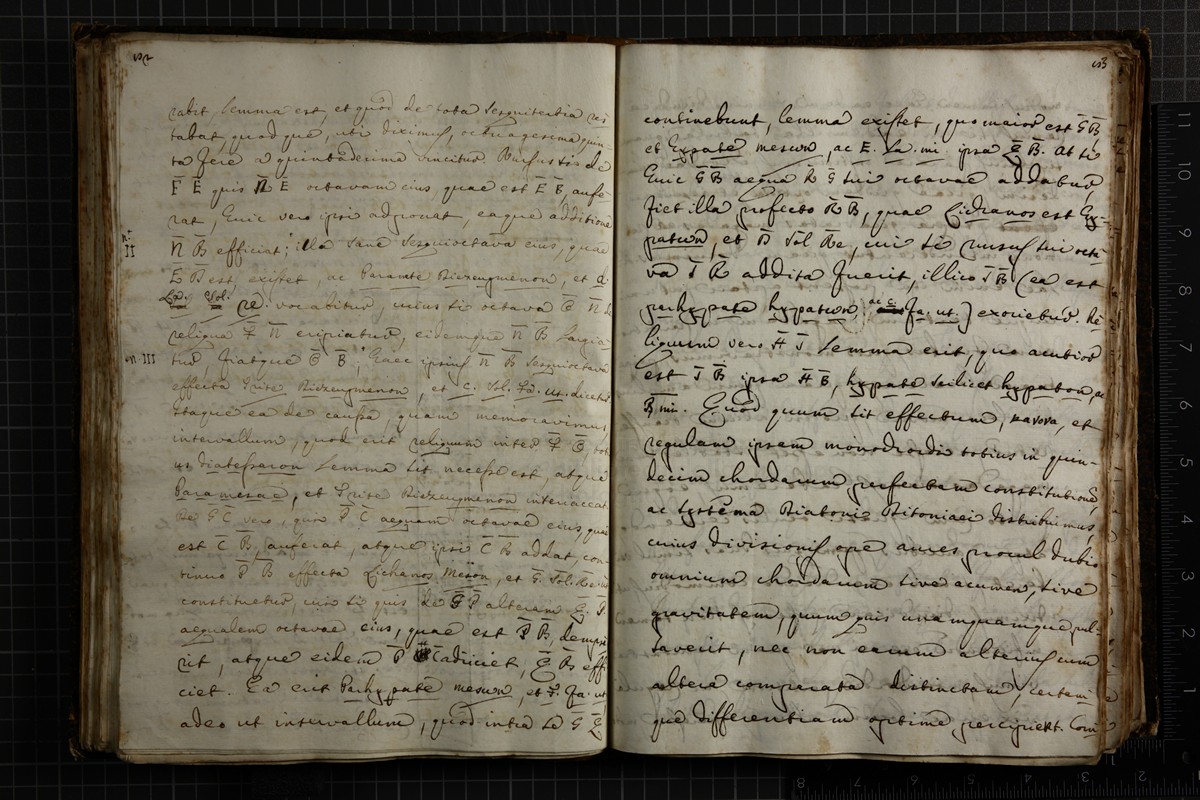 152
rabit, lemma est, et quod de tota sesquitertia res
tabat, quod que, uti diximus, octuagesima quin
ta fere a quintadecima vincitur. Rursus si de
F E quis N E octavam eius, quae est E B, aufe
rat, huic vero ipsi adponat, eaque additione
N B efficiat; illa sane sesquioctava eius, quae
E B est, existet, ac Paranete Diezeugmenon, et d.
La. Sol. re. vocabitur, cuius si octava C N de
reliqua F N eripiatur, eidemque N B largia
tur, fiatque C B; haec ipsius N B sesquioctava
effecta Trite Diezeugmenon, et C. Sol. Fa. ut. dicetur
Itaque ea de caussa, quam memoravimus
intervallum, quod erit reliquum inter F C, tot
us diatessaron lemma sit, necesse est, atque
Paramesae, et Trite Diezeugmenon interiaceat.
De G C vero, quae C aequam octavae eius, quae
est C B, auferat, atque ipsi C B addat, con
tinuo B effecta Lichanos Meson, et G. Sol. Re. ut
constituetur, cui si quis de G alteram
aequalem octavae eius, quae est B, dempse
rit, atque eidem adiiciet, B effi
ciet. Ea erit Parhypate meson, et F. fa. ut
adeo ut intervallum, quod intra se G
153
continebunt, lemma existet, quo maior est G B
et Hypate meson, ac E. La. mi. ipsa B. At si
huic G B aequa R G sui octavae addatur,
fiet illa profecto R B, quae Lichanos est Hy-
paton, et D Sol Re, cui si rursus sui octa
va I R addita fuerit, illico I B (ea est
parhypate hypaton, ac C. fa. ut.) exorietur. Re
liquum vero H I lemma erit, quo acutior
est I B ipsa H B, hypate scilicet hypaton, ac
B mi. Quod quum sit effectum, κανονα, et
regulam ipsam monochordi totius in quin-
decim chordarum perfectam constitutione,
ac systema Diatonic Ditoniaei distribuimus,
cuius divisionis ope aures procul dubio
omnium chordarum sive acumen, sive
gravitatem, quum quis unamquamque pul-
saverit, nec non earum alterius cum
altera comparata distinctam, certam-
que differentiam optime percipient. Com
n. II
n III